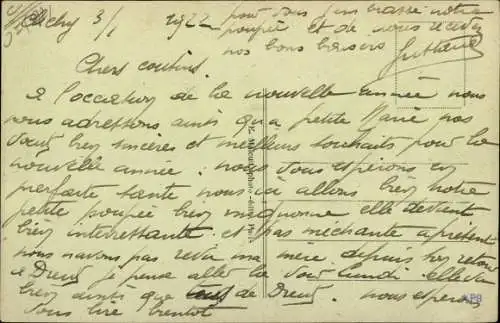 Clichy 3/1 1922
Chers cousins
a l'occasion de la nouvelle année nous
nous adressons ainsi qu'a petite Marie nos
vœux bien sincères et meilleurs souhaits pour la
nouvelle année. nous vous espérons en
parfaite santé nous ici allons bien notre
petite poupée bien mignonne elle devient
bien interessante et pas mechante a present
nous navons pas revu ma mère depuis her retour
de Dreux je pense aller la voir lundi elle va
bien ainsi que de Dreux. nous esperons
vous lire bientot
pour vous fera brasse notre
poupée et de nous recevez
nos bons baisers
APB